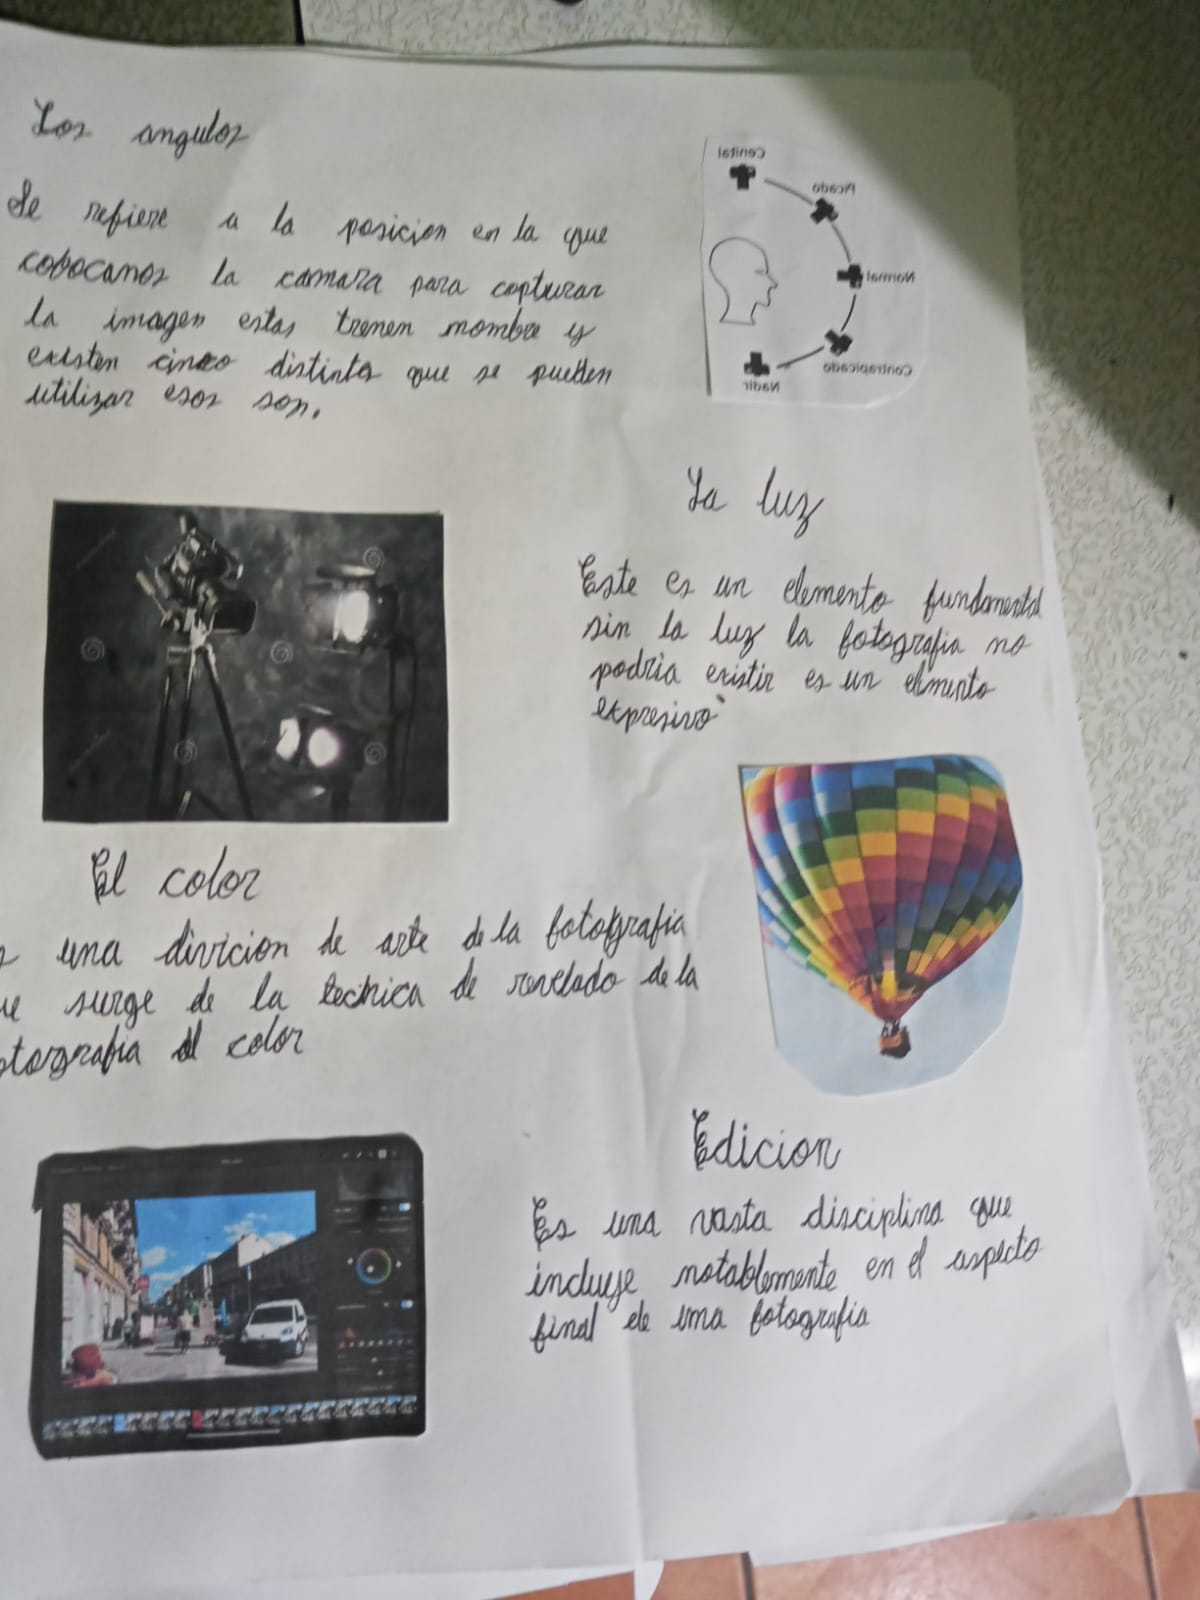 Los angulos
Se refiere a la posicion en la que
cobocanos la camara para capturar
la imagen estas trenen mombre y
existen cinco distintas que se pueden
utilizar esos son.
Cenital
Picado
Normal
Contrapicado
Nadir
La luz
Este es un elemento fundamental
sin la luz la fotografia no
podria existir es un elmento
expresivo
El color
una divicion de arte de la fotografia
surge de la tecnica de revelado de la
al color
Edicion
Es una vasta disciplina que
incluye notablemente en el aspecto
final de una fotografia